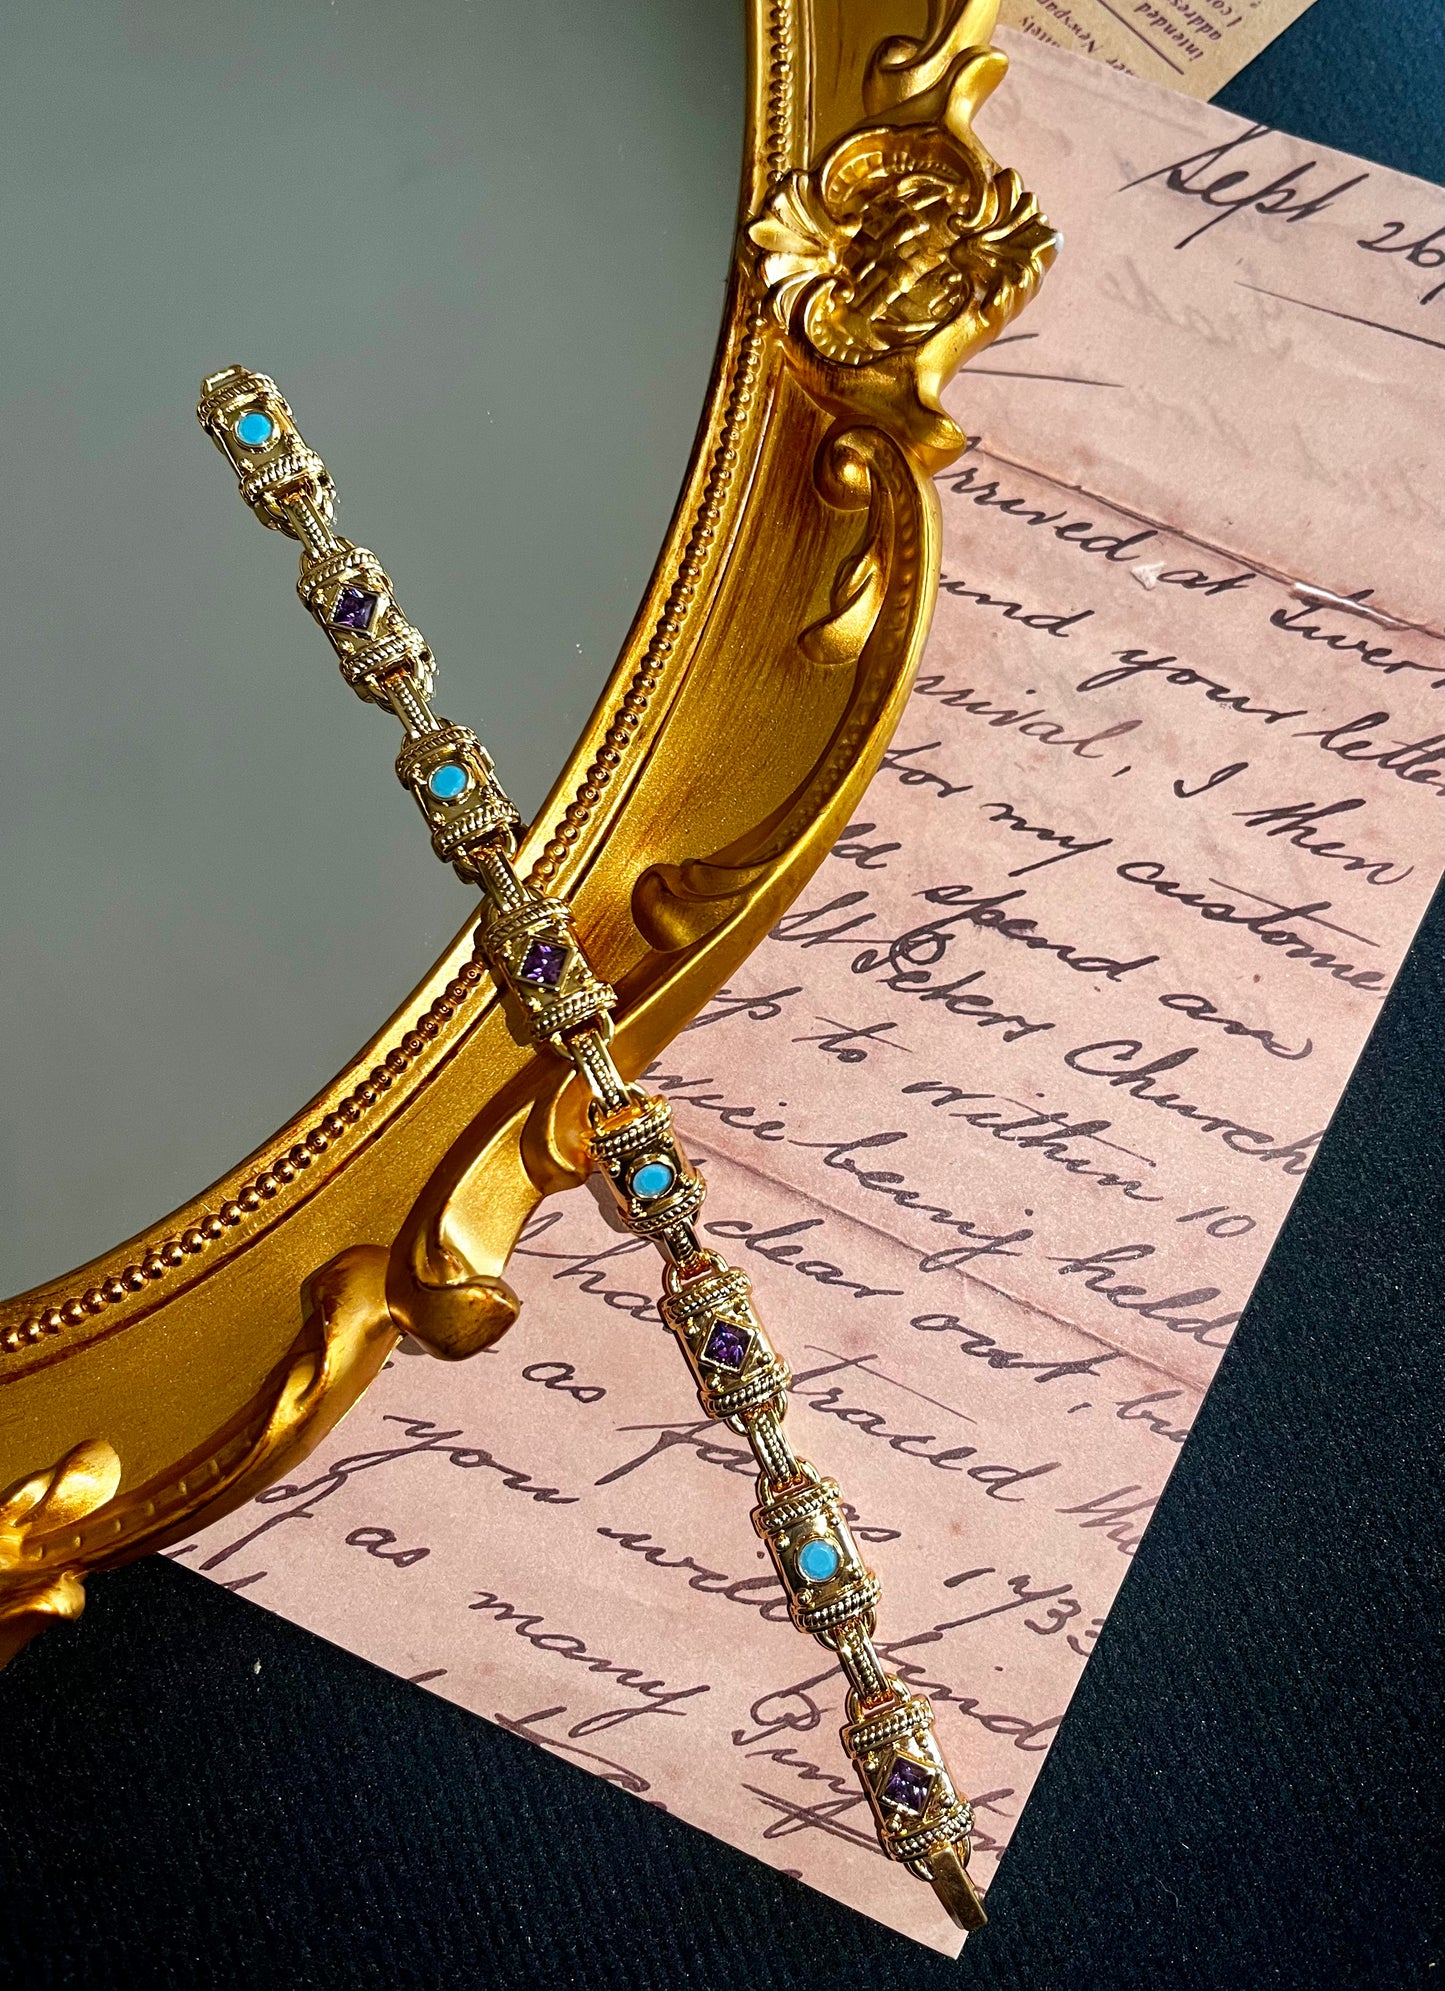 intended
address
I co
er Newspa
itely
Sept 26
Arrived at Liver
und your lette
rrival, I then
for my custome
ld spend an
St Peters Church
p to within 10
vice being held
clear out, bu
tha traced the
as far as 1733
you will find
as many Pin